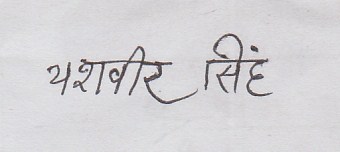 यशवीर सिंह